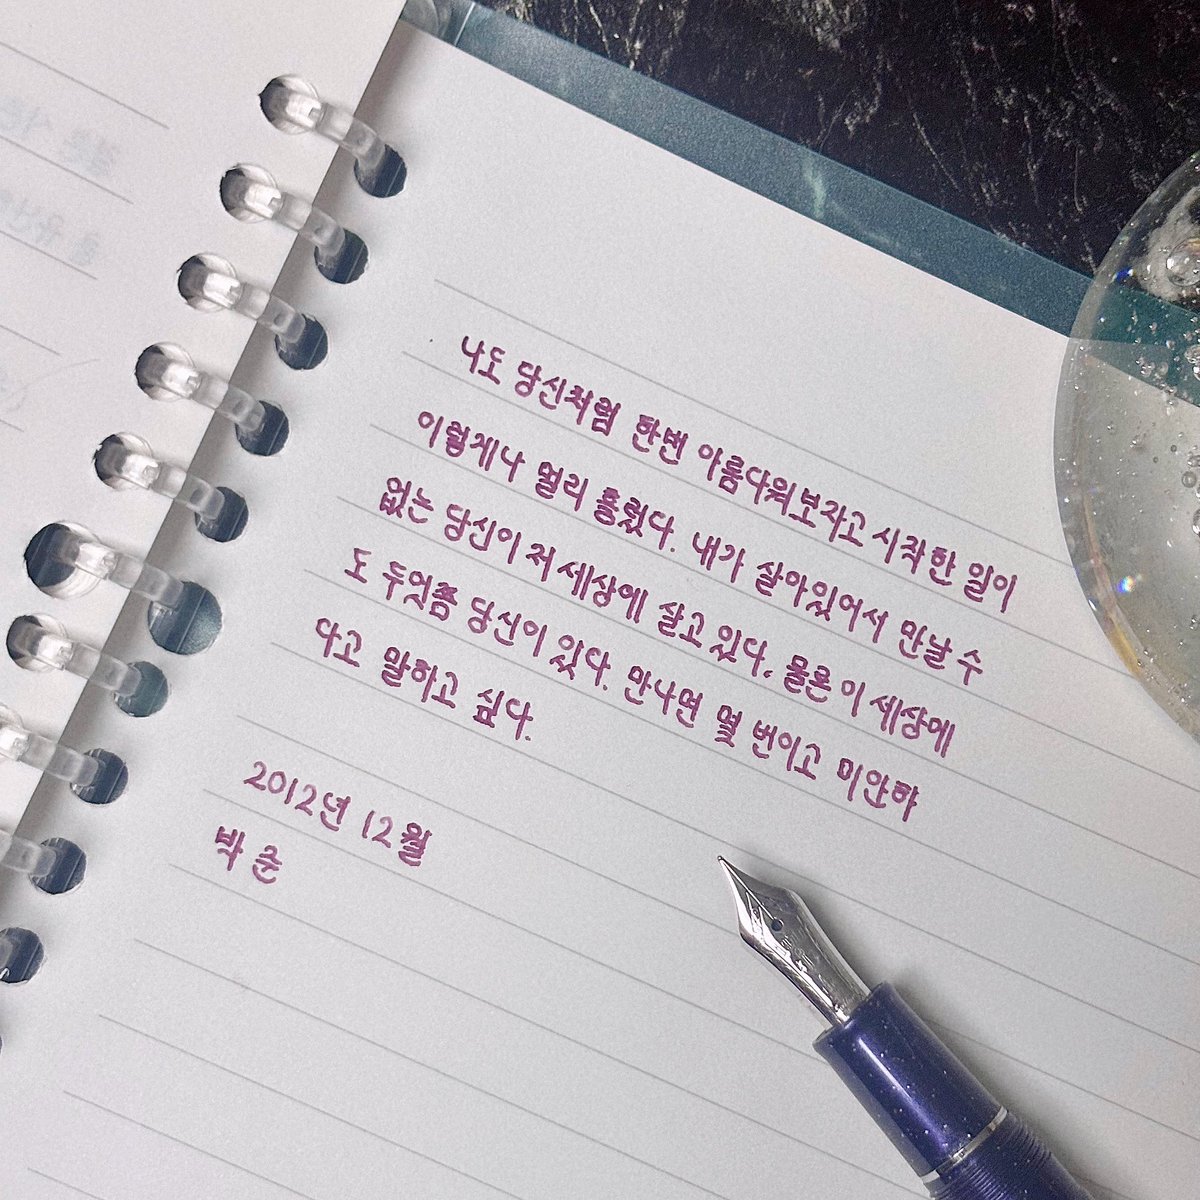 나도 당신처럼 한번 아름다워보자고 시작한 일이
이렇게나 멀리 흘렀다. 내가 살아있어서 만날 수
없는 당신이 저 세상에 살고 있다. 물론 이 세상에
도 두엇쯤 당신이 있다. 만나면 몇 번이고 미안하
다고 말하고 싶다.
2012년 12월
박 준